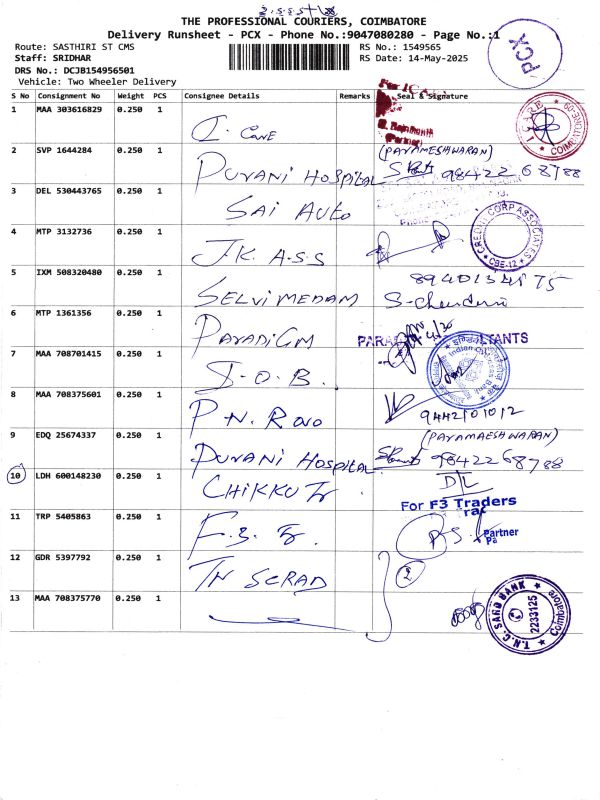 THE PROFESSIONAL COURIERS, COIMBATORE
Delivery Runsheet - PCX - Phone No.:9047080280 - Page No.:1
Route: SASTHIRI ST CMS
RS No.: 1549565
Staff: SRIDHAR
RS Date: 14-May-2025
DRS No.: DCJB154956501
Vehicle: Two Wheeler Delivery
PCX
S No Consignment No Weight PCS Consignee Details Remarks Seal & Signature
1 MAA 303616829 0.250 1 I. Care
2 SVP 1644284 0.250 1 PURANI HOSPITAL (PARAMESHWARAN) 98422 68788
3 DEL 530443765 0.250 1 SAI AUTO
4 MTP 3132736 0.250 1 J.K. A.S.S CREDIT CORP ASSOCIATES CBE-12
5 IXM 508320480 0.250 1 SELVI MEDAM
6 MTP 1361356 0.250 1 PARADIGM
7 MAA 708701415 0.250 1 I.O.B.
8 MAA 708375601 0.250 1 P.N. Rao 9442101012
9 EDQ 25674337 0.250 1 PURANI HOSPITAL (PARAMAESHWARAN) 98422 68788
10 LDH 600148230 0.250 1 CHIKKU Tr D/L
For F3 Traders
11 TRP 5405863 0.250 1 F.3. Tr. Partner
12 GDR 5397792 0.250 1 TN SCRAD 2
13 MAA 708375770 0.250 1
T.N.C. SARD BANK 2233125 Coimbatore